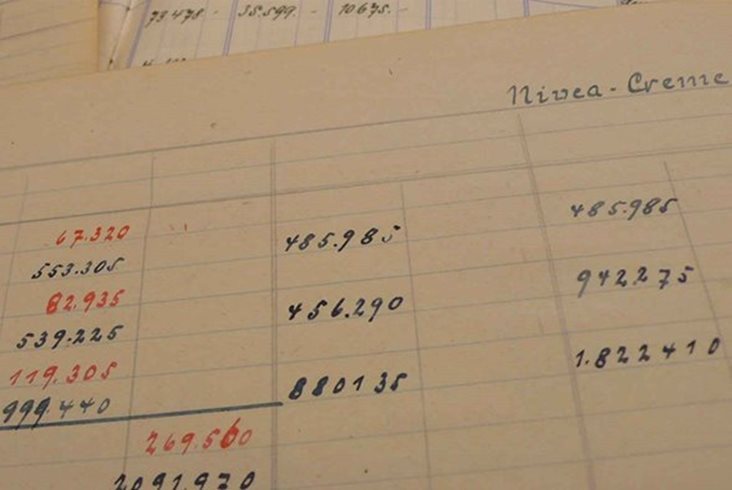 73478 - 35.599.- 10675.-
Nivea-Creme
67.320 485.985 485.985
553.305
82.935 456.290 942.275
539.225
119.305 880135 1.822410
999.440
269.560
2091.970